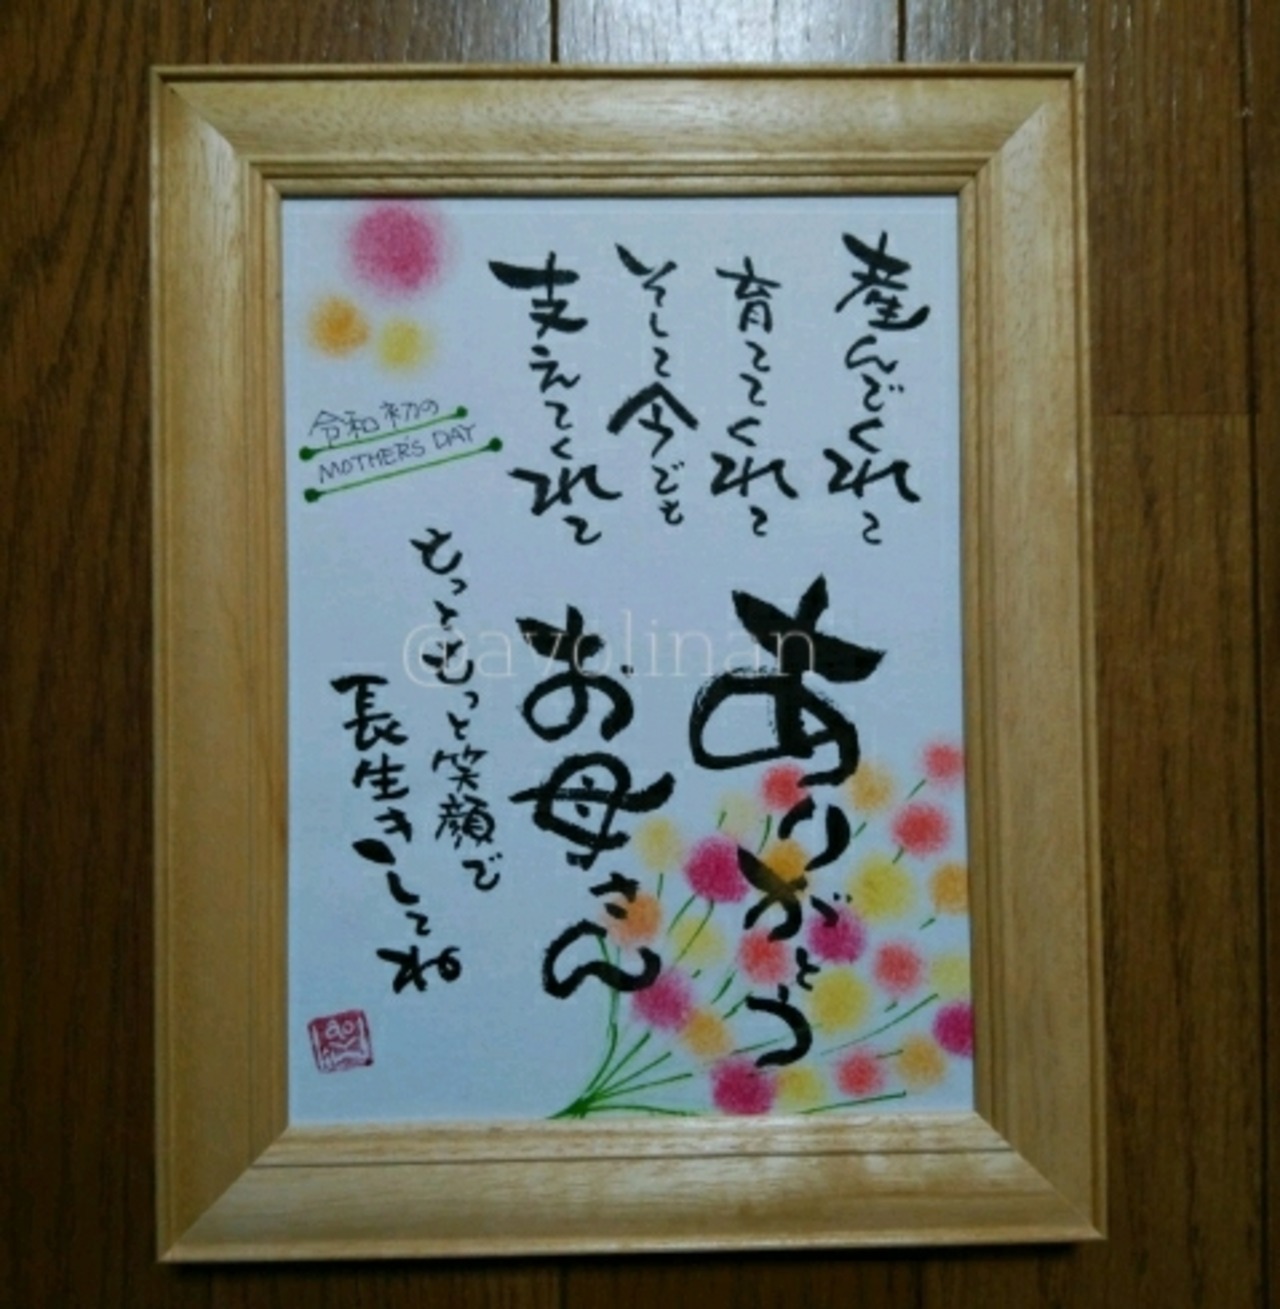 産んでくれて
育ててくれて
そして今でも
支えてくれて
ありがとう
お母さん
もっともっと笑顔で
長生きしてね
令和初の
MOTHER'S DAY
@ayolinan